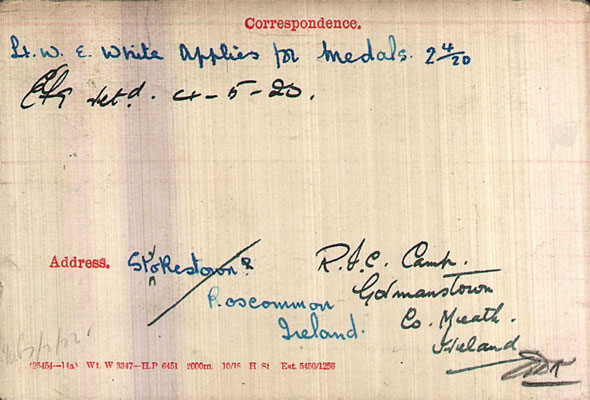 Correspondence.
Lt. W. E. White Applies for Medals. 2 4/20
retd. 4-5-20.
Address.
Strokestown
Roscommon
Ireland.
R.I.C. Camp.
Gormanstown
Co. Meath.
Ireland
(26454—14a) Wt. W 3347—H.P 6451 2000m. 10/19 H St Est. 5450/1256